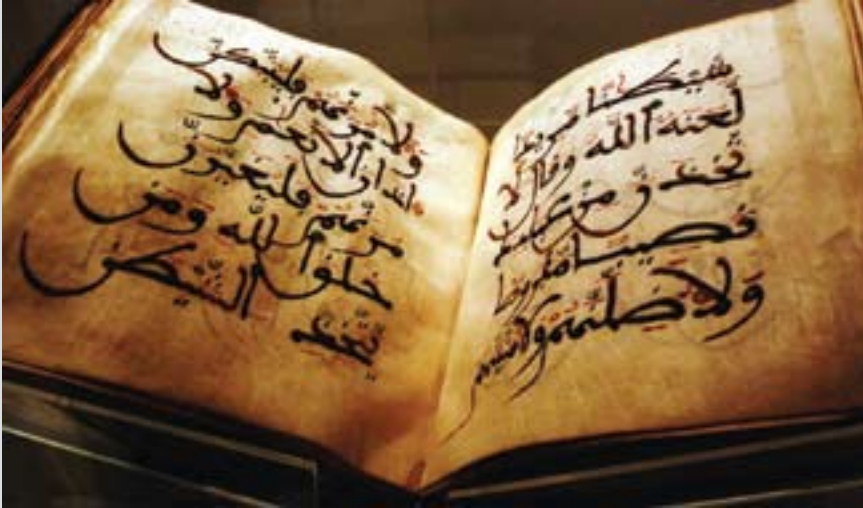 شيطنا مريدا
لعنه الله وقال لا
تخذن من عبادك
نصيبا مفروضا
ولأضلنهم ولأمنينهم
ولأمرنهم فليبتكن
ءاذان الأنعم ولأ
مرنهم فليغيرن
خلق الله ومن
يتخذ الشيطن